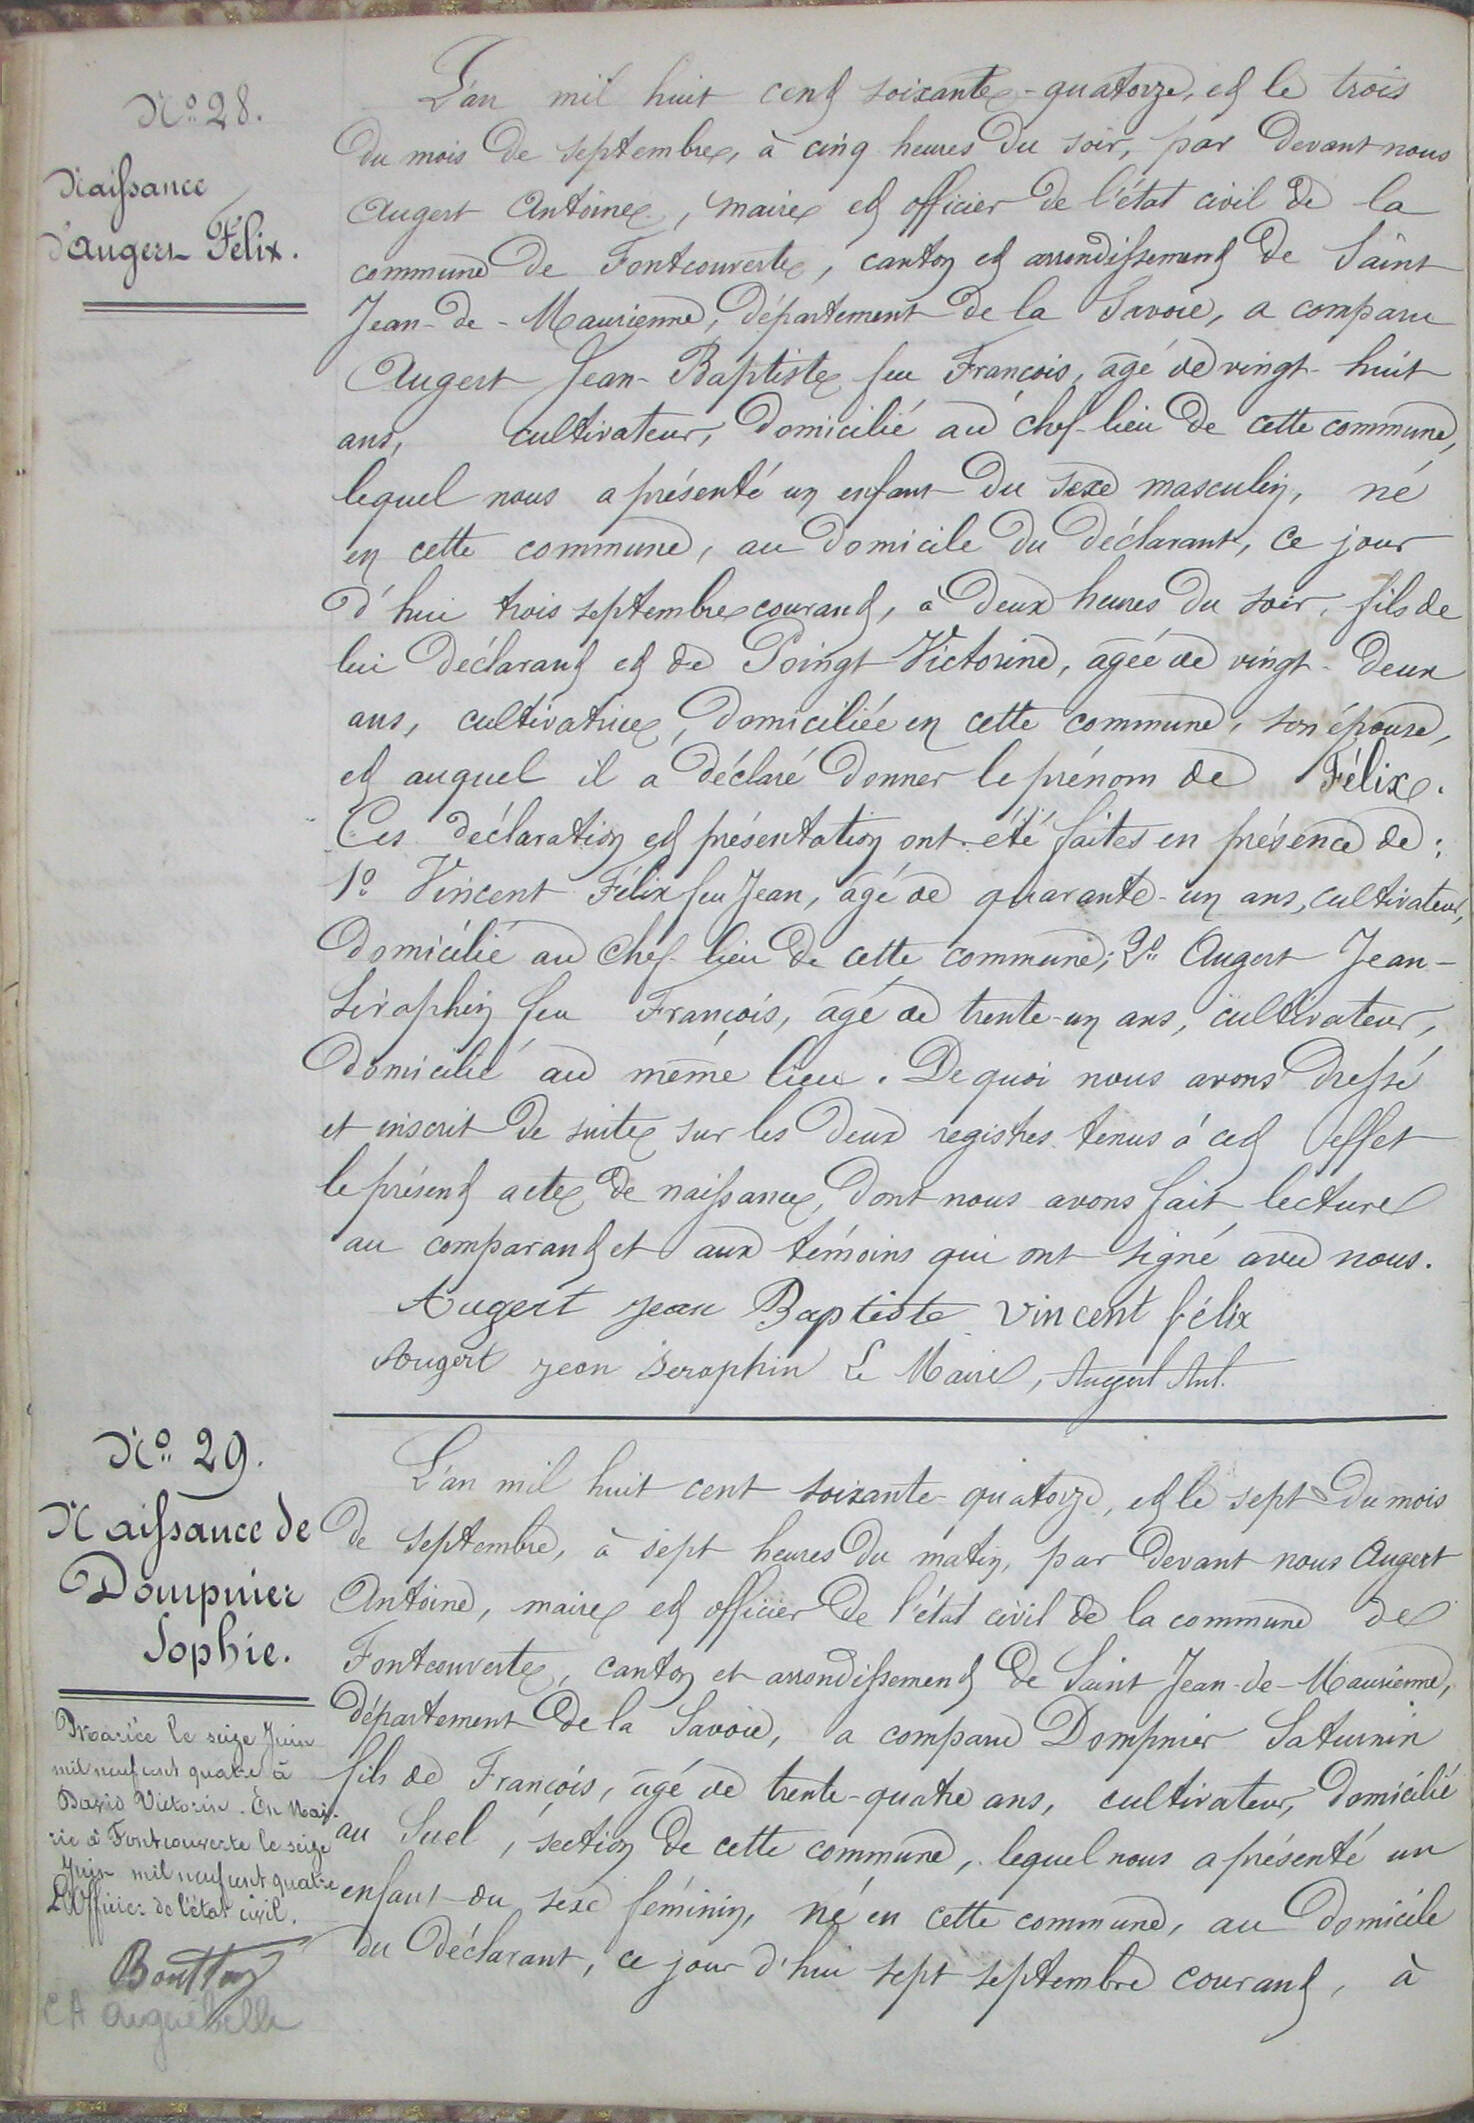 N° 28.
Naissance
d'Augert Félix.
L'an mil huit cent soixante-quatorze, et le trois
du mois de septembre, à cinq heures du soir, par devant nous
Augert Antoine, maire et officier de l'état civil de la
commune de Fontcouverte, canton et arrondissement de Saint
Jean-de-Maurienne, département de la Savoie, a comparu
Augert Jean-Baptiste feu François, âgé de vingt-huit
ans, cultivateur, domicilié au chef-lieu de cette commune,
lequel nous a présenté un enfant du sexe masculin, né
en cette commune, au domicile du déclarant, ce jour
d'hui trois septembre courant, à deux heures du soir, fils de
lui déclarant et de Poingt Victorine, agée de vingt-deux
ans, cultivatrice, domiciliée en cette commune, son épouse,
et auquel il a déclaré donner le prénom de Félix.
Ces déclaration et présentation ont été faites en présence de:
1° Vincent Félix feu Jean, âgé de quarante-un ans, cultivateur,
domicilié au Chef-lieu de cette commune; 2° Augert Jean-
Séraphin feu François, âgé de trente-un ans, cultivateur,
domicilié au même lieu. De quoi nous avons dressé
et inscrit de suite sur les deux registres tenus à cet effet
le présent acte de naissance, dont nous avons fait lecture
au comparant et aux témoins qui ont signé avec nous.
Augert Jean Baptiste Vincent félix
Augert jean Seraphin Le Maire, Augert Ant.
N° 29.
Naissance de
Dompnier
Sophie.
L'an mil huit cent soixante-quatorze, et le sept du mois
de septembre, à sept heures du matin, par devant nous Augert
Antoine, maire et officier de l'état civil de la commune de
Fontcouverte, canton et arrondissement de Saint Jean-de-Maurienne,
département de la Savoie, a comparu Dompnier Saturnin
fils de François, âgé de trente-quatre ans, cultivateur, domicilié
au Suel, section de cette commune, lequel nous a présenté un
enfant du sexe féminin, né en cette commune, au domicile
du déclarant, ce jour d'hui sept septembre courant, à
Mariée le seize Juin
mil neuf cent quatre à
Victorin. En Mai-
rie à Fontcouverte le seize
Juin mil neuf cent quatre
L'Officier de l'état civil.
CA Aiguebelle